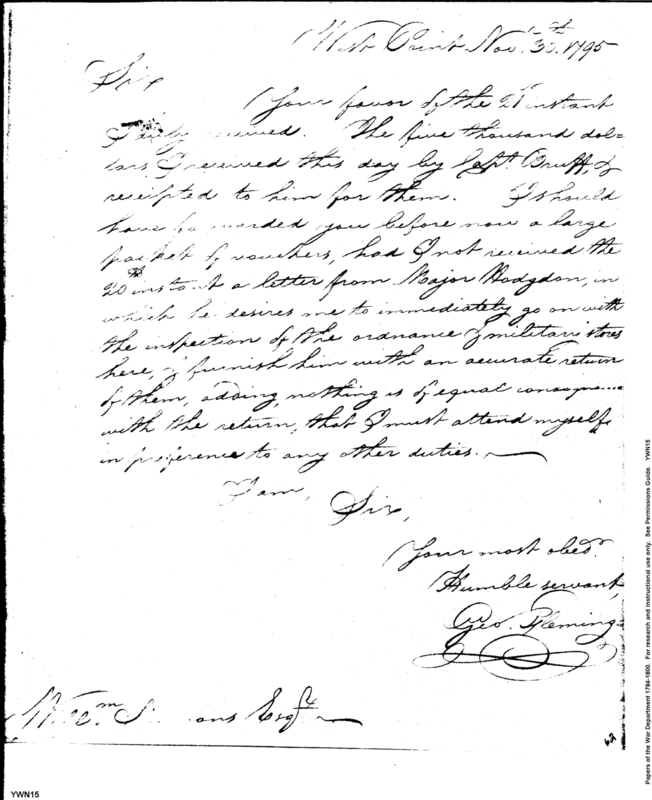 West Point Nov. 30th. 1795
Sir
Your favor of the 21st instant
I duly received. The five thousand dol=
lars I received this day by Capt. Bruff, &
receipted to him for them. I should
have forwarded you before now a large
packet of vouchers, had I not received the
20th instant a letter from Major Hodgdon, in
which he desires me to immediately go on with
the inspection of the ordnance & military stores
here, & furnish him with an accurate return
of them, adding nothing is of equal conseque
with the return, that I must attend myself
in preference to any other duties.
I am,
Sir,
Your most obedt.
Humble servant,
Geo. Fleming
Willm. Simmons Esqr.
62
YWN15
Papers of the War Department 1784-1800. For research and instructional use only. See Permissions Guide. YWN15